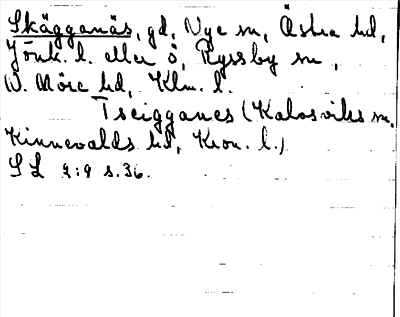 Skägganäs, gd, Nye sn, Östra hd,
Jönk. l. eller ö, Ryssby sn,
N. Möre hd, Klm. l.
Tscigganes (Kalvsviks sn,
Kinnevalds hd, Kron. l.)
SL 2:9 s. 36.